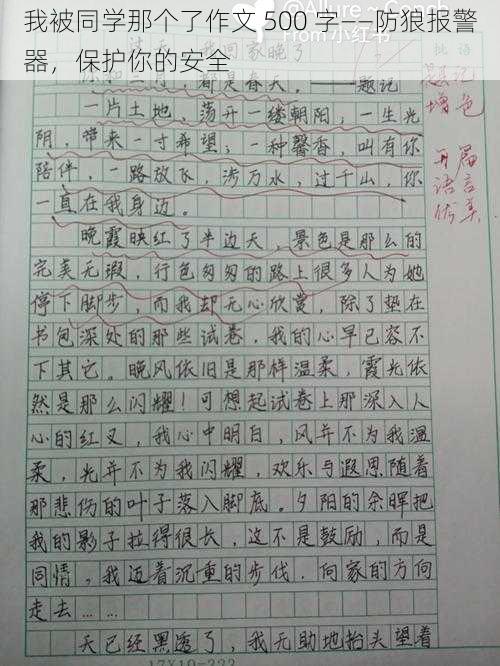 我被同学那个了作文 500 字——防狼报警
器，保护你的安全
@Allure ~ Concky
From 小红书
批语
我回家晚了
都是春天。——题记
题记
增色
一片土地，荡开一缕朝阳，一生光
阴，带来一寸希望；一种馨香，叫有你
陪伴，一路放飞，涉万水，过千山，你
一直在我身边。
开篇
语言
优美
晚霞映红了半边天，景色是那么的
完美无瑕，行色匆匆的路上很多人为她
停下脚步，而我却无心欣赏，除了垫在
书包深处的那些试卷，我的心早已容不
下其它。晚风依旧是那样温柔，霞光依
然是那么闪耀！可想起试卷上那深入人
心的红叉，我心中明白，风并不为我温
柔，光并不为我闪耀，欢乐与遐思随着
那悲伤的叶子落入脚底。夕阳的余晖把
我的影子拉得很长，这不是鼓励，而是
同情，我迈着沉重的步伐，向家的方向
走去……
天已经黑透了，我无助地抬头望着
17X19=323